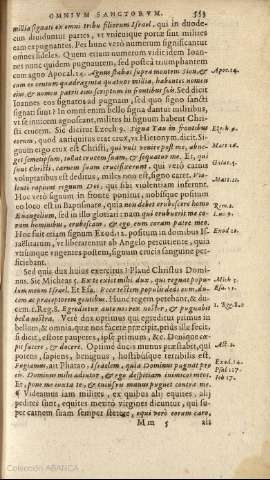 OMNIVM SANCTORVM. 553
millia signati ex omni tribu filiorum Israel, qui in duode-
cim diuiduntur partes, vt videnique portæ sint milites
eam expugnantes. Per hunc verò numerum significantur
omnes fideles. Quem etiam numerum vidit idem Ioan-
nes nunc quidem pugnantem, sed postea triumphantem
cum agno Apocal. 14. Agnus stabat supra montem Sion, &
cum eo centum quadraginta quatuor millia, habentes nomen
eius, & nomen patris eius scriptum in frontibus suis. Sed dicit
Ioannes eos signatos ad pugnam, sed quo signo sancti
signati sunt? In omni enim bello signa dantur militibus,
vt se inuicem agnoscant, milites hi signum habent Chri-
sti crucem. Sic dicitur Ezech. 9. Signa Tau in frontibus
eorum, quod antiquitus erat crux, vt Hieronym. dicit. Si-
gnum ergo crux est Christi, qui vult venire post me, abne-
get semetipsum, tollat crucem suam, & sequatur me. Et, qui
sunt Christi, carnem suam crucifixerunt, qui verò carnis
voluptatibus est deditus, miles non est, signo caret. Vio-
lenti rapiunt regnum Dei, qui sibi violentiam inferunt.
Hoc verò signum in fronte ponitur, nobisque positum
eo loco est in Baptismate, quia non debet erubescere homo
Euangelium, sed in illo gloriari: nam qui erubuerit me co-
ram hominibus, erubescam, & ego eum coram patre meo.
Hoc fuit etiam signum Exod. 12. positum in domibus Is-
raëlitarum, vt liberarentur ab Angelo percutiente, quia
vtriusque regentes postem, signum crucis sanguine per-
ficiebant.
Sed quis dux huius exercitus? Planè Christus Domi-
nus. Sic Micheæ 5. Ex te exiet mihi dux, qui regnat popu-
lum meum Israel. Et Esa. Ecce testem populis dedi eum, du-
cem ac præceptorem gentibus. Hunc regem petebant, & du-
cem. 1. Reg. 8. Egredietur ante nos rex noster, & pugnabit
bella nostra. Verè dux optimus qui egreditur primus in
bellum, & omnia, quæ nos facere præcipit, priùs ille fecit,
si dicit, estote pauperes, ipse primum, &c. Denique cœ-
pit facere, & docere. Optimè ducis munus præstabit, qui
potens, sapiens, benignus, hostibusque terribilis est.
Fugiamus, ait Pharao, Israelem, quia Dominus pugnat pro
eis. Dominus mihi adiutor, & ego despiciam inimicos meos.
Et, pone me iuxta te, & cuiusuis manus pugnet contra me.
¶ Videamus iam milites, ex quibus alij equites, alij
pedites sunt, equites meritò virgines dicuntur, qui su-
per carnem suam semper sterere, equi verò eorum caro,
M m 5 alij
Apoc. 14.
Ezech. 9.
Matt. 16.
Galat. 5.
Matt. 11.
Rom. 1.
Luc. 9.
Exod. 12.
Mich. 5.
Esa. 55.
1. Reg. 8.
Act. 1.
Exod. 14.
Psal. 117.
Iob 17.
Colección ABANCA